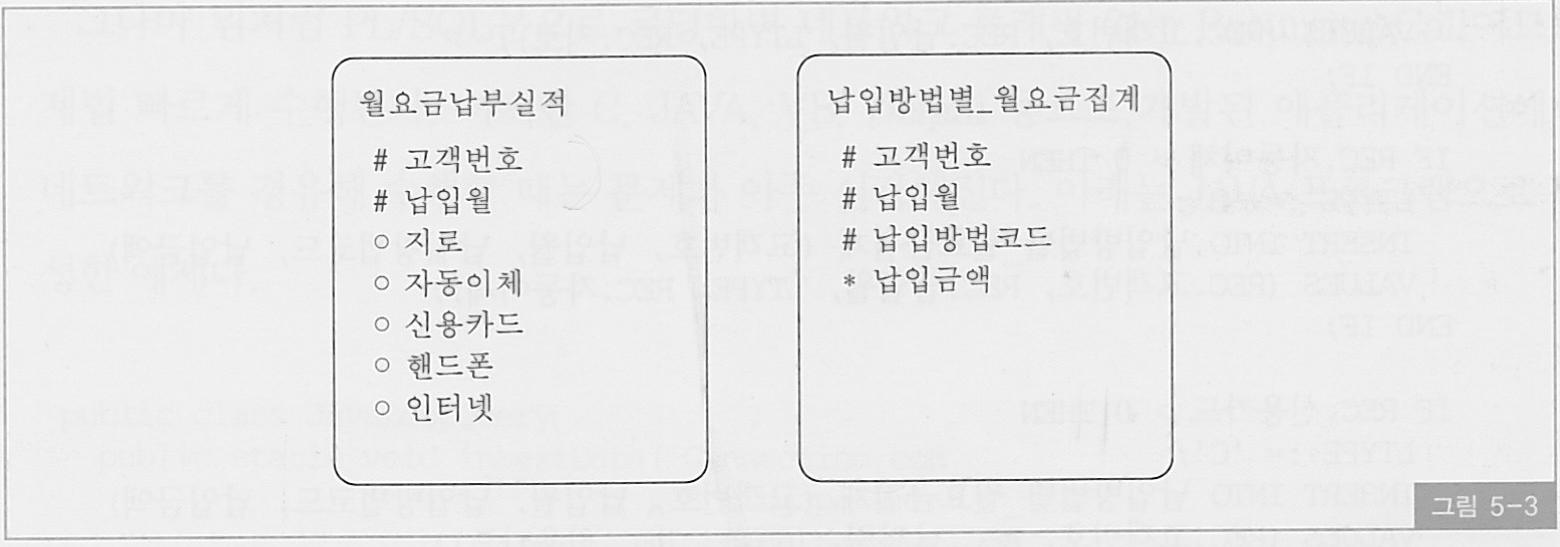 월요금납부실적
# 고객번호
# 납입월
○ 지로
○ 자동이체
○ 신용카드
○ 핸드폰
○ 인터넷
납입방법별_월요금집계
# 고객번호
# 납입월
# 납입방법코드
* 납입금액
그림 5-3